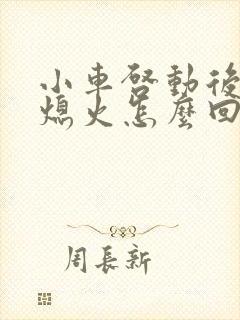 小車啓動後
熄火怎麼回
周長新